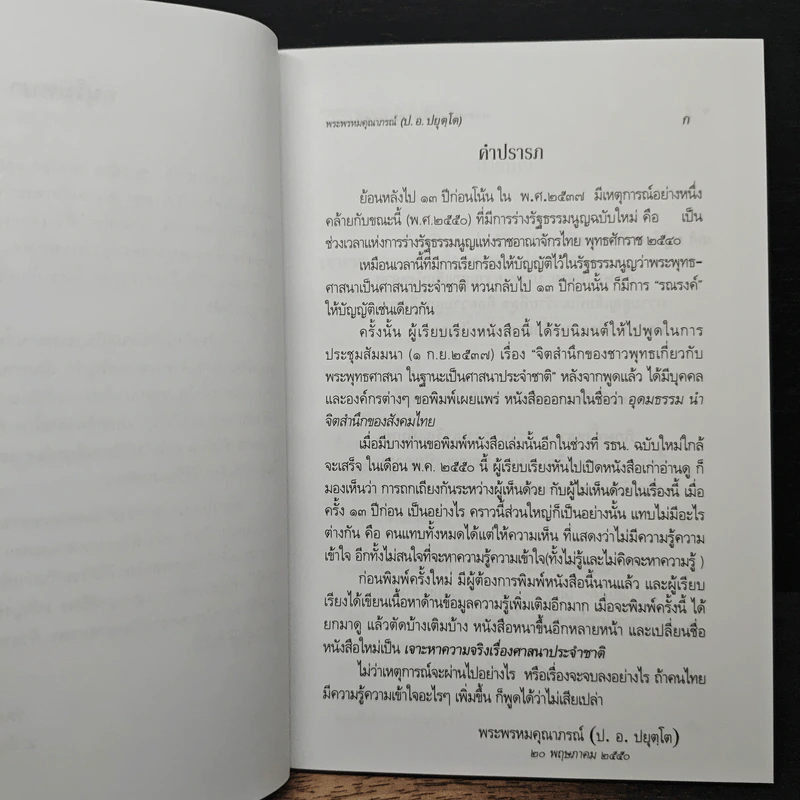 พระพรหมคุณาภรณ์ (ป. อ. ปยุตฺโต) ก
คำปรารภ
ย้อนหลังไป ๑๓ ปีก่อนโน้น ใน พ.ศ.๒๕๓๗ มีเหตุการณ์อย่างหนึ่ง
คล้ายกับขณะนี้ (พ.ศ.๒๕๕๐) ที่มีการร่างรัฐธรรมนูญฉบับใหม่ คือ เป็น
ช่วงเวลาแห่งการร่างรัฐธรรมนูญแห่งราชอาณาจักรไทย พุทธศักราช ๒๕๔๐
เหมือนเวลานี้ที่มีการเรียกร้องให้บัญญัติไว้ในรัฐธรรมนูญว่าพระพุทธ-
ศาสนาเป็นศาสนาประจำชาติ หวนกลับไป ๑๓ ปีก่อนนั้น ก็มีการ "รณรงค์"
ให้บัญญัติเช่นเดียวกัน
ครั้งนั้น ผู้เรียบเรียงหนังสือนี้ ได้รับนิมนต์ให้ไปพูดในการ
ประชุมสัมมนา (๑ ก.ย.๒๕๓๗) เรื่อง "จิตสำนึกของชาวพุทธเกี่ยวกับ
พระพุทธศาสนา ในฐานะเป็นศาสนาประจำชาติ" หลังจากพูดแล้ว ได้มีบุคคล
และองค์กรต่างๆ ขอพิมพ์เผยแพร่ หนังสือออกมาในชื่อว่า อุดมธรรม นำ
จิตสำนึกของสังคมไทย
เมื่อมีบางท่านขอพิมพ์หนังสือเล่มนั้นอีกในช่วงที่ รธน. ฉบับใหม่ใกล้
จะเสร็จ ในเดือน พ.ค. ๒๕๕๐ นี้ ผู้เรียบเรียงหันไปเปิดหนังสือเก่าอ่านดู ก็
มองเห็นว่า การถกเถียงกันระหว่างผู้เห็นด้วย กับผู้ไม่เห็นด้วยในเรื่องนี้ เมื่อ
ครั้ง ๑๓ ปีก่อน เป็นอย่างไร คราวนี้ส่วนใหญ่ก็เป็นอย่างนั้น แทบไม่มีอะไร
ต่างกัน คือ คนแทบทั้งหมดได้แต่ให้ความเห็น ที่แสดงว่าไม่มีความรู้ความ
เข้าใจ อีกทั้งไม่สนใจที่จะหาความรู้ความเข้าใจ(ทั้งไม่รู้และไม่คิดจะหาความรู้ )
ก่อนพิมพ์ครั้งใหม่ มีผู้ต้องการพิมพ์หนังสือนี้นานแล้ว และผู้เรียบ
เรียงได้เขียนเนื้อหาด้านข้อมูลความรู้เพิ่มเติมอีกมาก เมื่อจะพิมพ์ครั้งนี้ ได้
ยกมาดู แล้วตัดบ้างเติมบ้าง หนังสือหนาขึ้นอีกหลายหน้า และเปลี่ยนชื่อ
หนังสือใหม่เป็น เจาะหาความจริงเรื่องศาสนาประจำชาติ
ไม่ว่าเหตุการณ์จะผ่านไปอย่างไร หรือเรื่องจะจบลงอย่างไร ถ้าคนไทย
มีความรู้ความเข้าใจอะไรๆ เพิ่มขึ้น ก็พูดได้ว่าไม่เสียเปล่า
พระพรหมคุณาภรณ์ (ป. อ. ปยุตฺโต)
๒๐ พฤษภาคม ๒๕๕๐